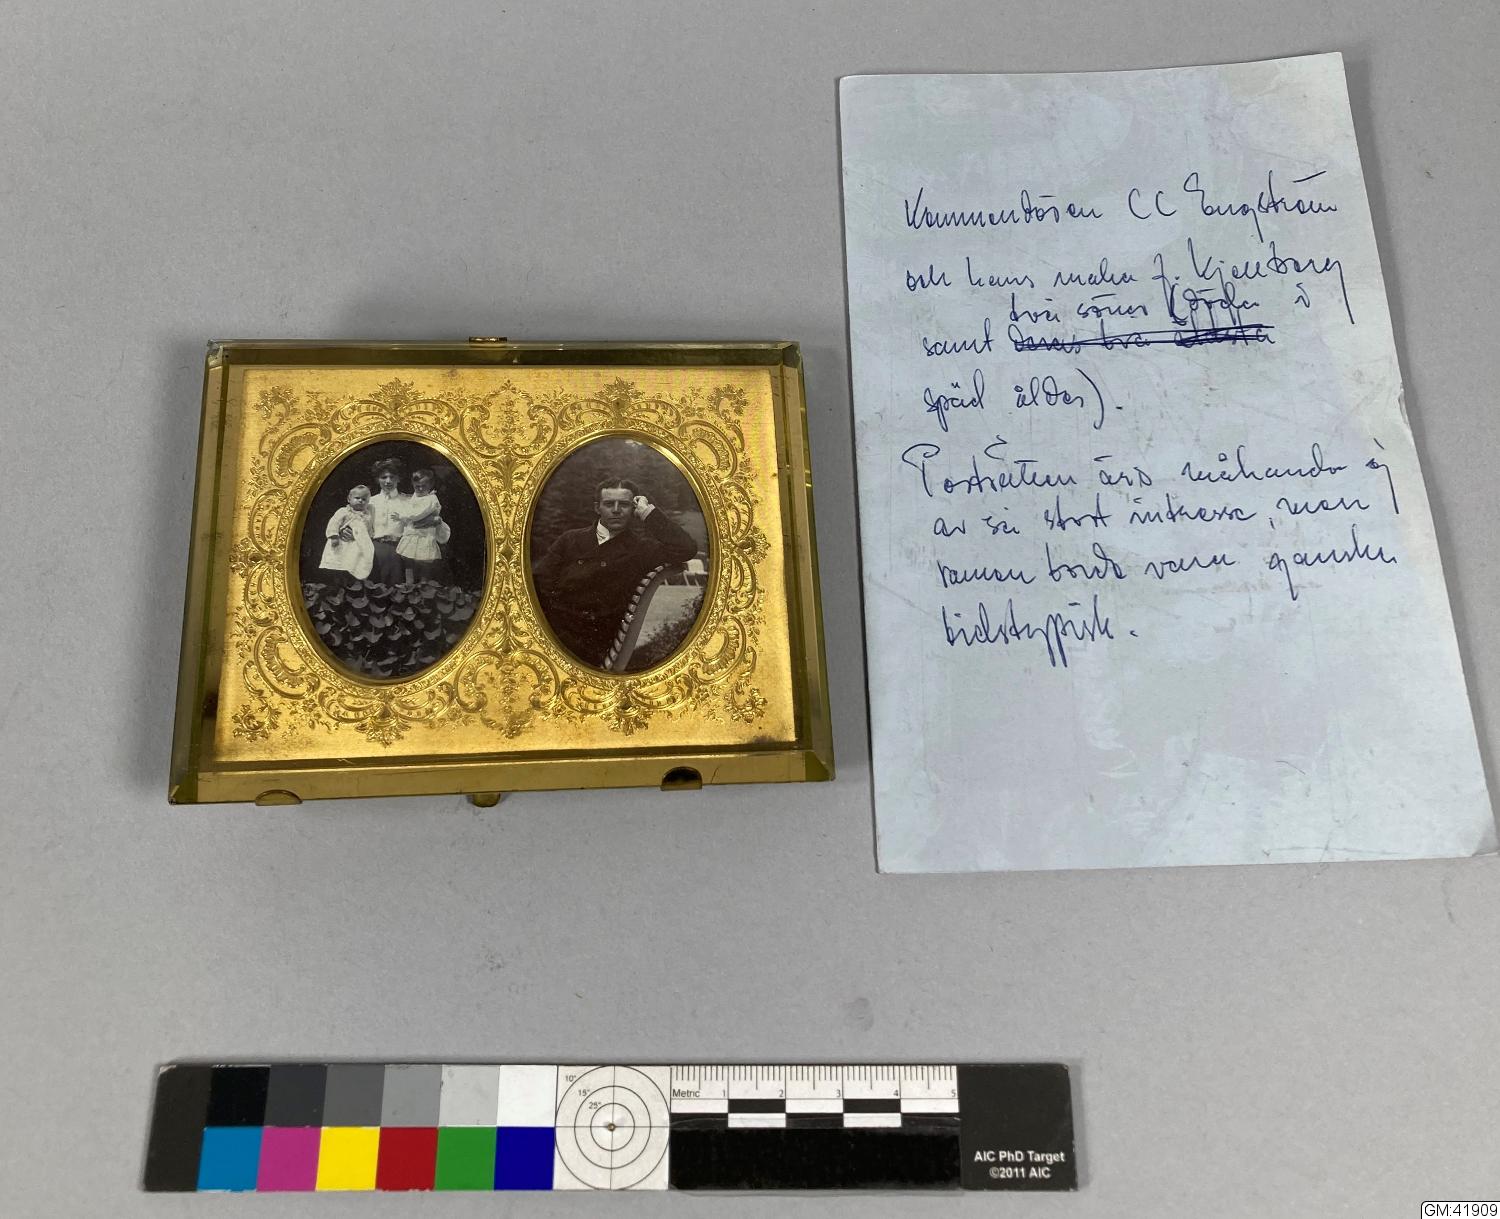 Kommendören CC Engström
och hans maka f. Kjellberg
två söner (döda i
samt deras två äldsta
späd ålder).
Porträtten äro måhända ej
av så stort intresse, men
ramen torde vara ganska
tidstypisk.
10°
15°
25°
Metric 1 2 3 4 5
AIC PhD Target
©2011 AIC
GM:41909